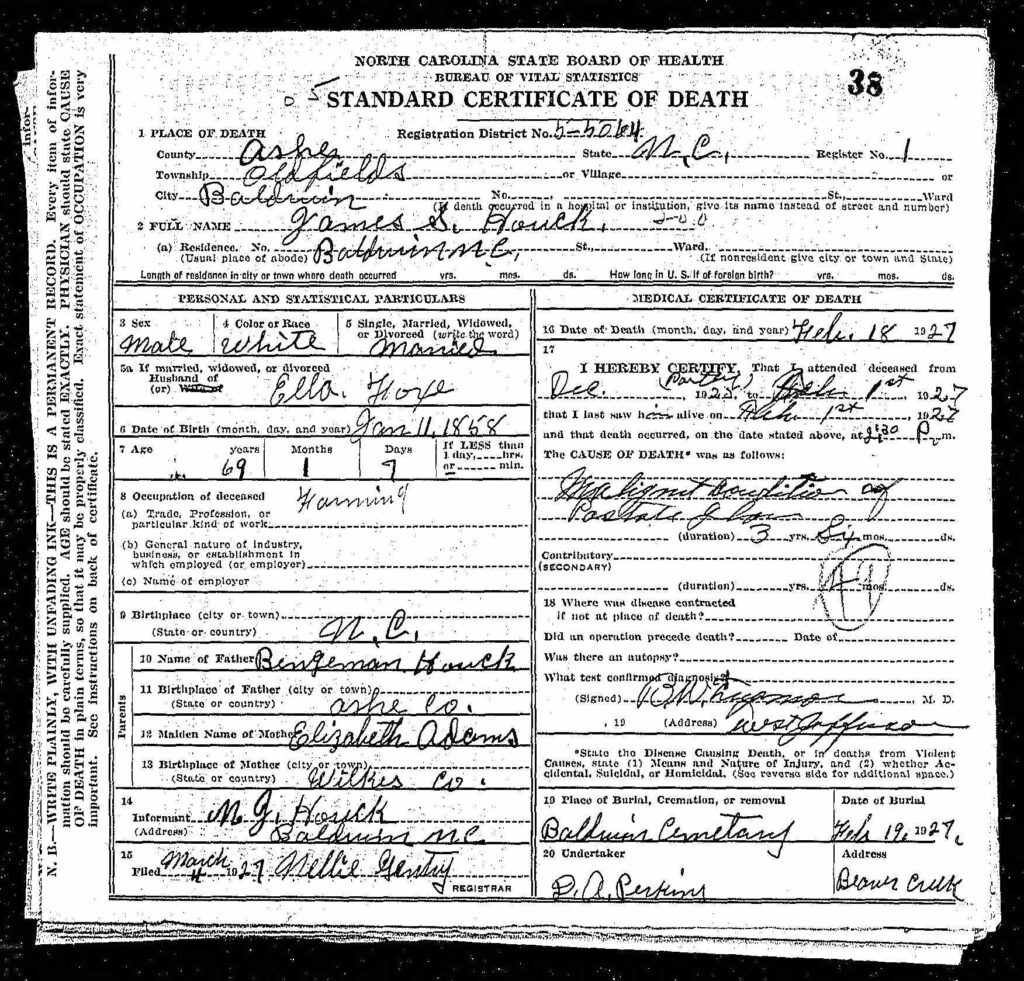 NORTH CAROLINA STATE BOARD OF HEALTH
BUREAU OF VITAL STATISTICS
38
STANDARD CERTIFICATE OF DEATH
1 PLACE OF DEATH Registration District No. 5-5064
County Ashe State N.C. Register No. 1
Township Oldfields or Village or
City Baldwin No. St., Ward
(If death occurred in a hospital or institution, give its name instead of street and number)
2 FULL NAME James S. Houck.
(a) Residence. No. Baldwin N.C. St., Ward.
(Usual place of abode) (If nonresident give city or town and State)
Length of residence in city or town where death occurred yrs. mos. ds. How long in U. S. if of foreign birth? yrs. mos. ds.
PERSONAL AND STATISTICAL PARTICULARS
3 Sex 4 Color or Race 5 Single, Married, Widowed, or Divorced (write the word)
Male White Married
5a If married, widowed, or divorced
Husband of
(or) Ella.
6 Date of Birth (month, day, and year) Jan 11, 1858
7 Age years Months Days If LESS than 1 day, hrs. or min.
69 1 7
8 Occupation of deceased Farming
(a) Trade, Profession, or particular kind of work
(b) General nature of industry, business, or establishment in which employed (or employer)
(c) Name of employer
9 Birthplace (city or town)
(State or country) N.C.
Parents
10 Name of Father Bengeman Houck
11 Birthplace of Father (city or town)
(State or country) Ashe Co.
12 Maiden Name of Mother Elizabeth Adams
13 Birthplace of Mother (city or town)
(State or country) Wilkes Co.
14
Informant Houck
(Address) Baldwin N.C
15 Filed March 4 1927 Nellie Gentry
REGISTRAR
MEDICAL CERTIFICATE OF DEATH
16 Date of Death (month, day, and year) Feb. 18 1927
17
I HEREBY CERTIFY, That I attended deceased from
Dec. 192 Feb 1st, 1927
that I last saw him alive on Feb 1st, 1927
and that death occurred, on the date stated above, at P m.
The CAUSE OF DEATH* was as follows:
Malignt Condition of
(duration) 3 yrs. Six mos. ds.
Contributory
(SECONDARY)
(duration) yrs. mos. ds.
18 Where was disease contracted
if not at place of death?
Did an operation precede death? Date of
Was there an autopsy?
What test confirmed diagnosis?
(Signed) M. D.
, 19 (Address)
*State the Disease Causing Death, or in deaths from Violent
Causes, state (1) Means and Nature of Injury, and (2) whether Ac-
cidental, Suicidal, or Homicidal. (See reverse side for additional space.)
19 Place of Burial, Cremation, or removal Date of Burial
Baldwin Cemetary Feb 19, 1927.
20 Undertaker Address
D. A. Perkins Beaver Creek
N. B.—WRITE PLAINLY, WITH UNFADING INK—THIS IS A PERMANENT RECORD. Every item of infor-
mation should be carefully supplied. AGE should be stated EXACTLY. PHYSICIAN should state CAUSE
OF DEATH in plain terms, so that it may be properly classified. Exact statement of OCCUPATION is very
important. See instructions on back of certificate.